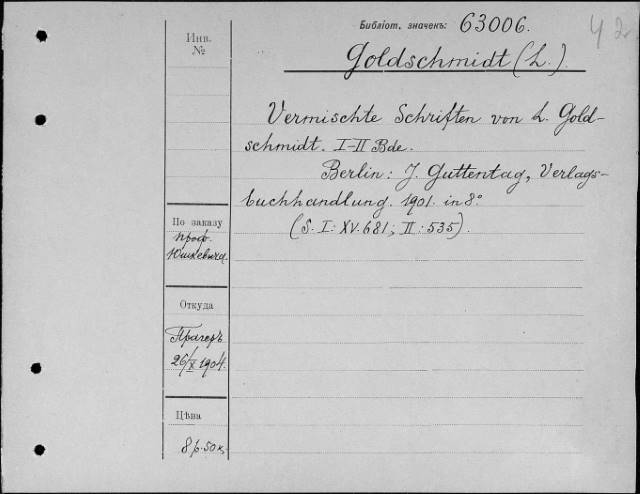 Библіот. значекъ: 63006.
42
Инв.
№
Goldschmidt (L.).
Vermischte Schriften von L. Gold-
schmidt. I-II Bde.
Berlin: J. Guttentag, Verlags-
buchhandlung. 1901. in 8°.
(S. I: XV. 681; II: 535).
По заказу
проф.
Юшкевича.
Откуда
Прагеръ
26/X 1904.
Цѣна
8 р. 50 к.